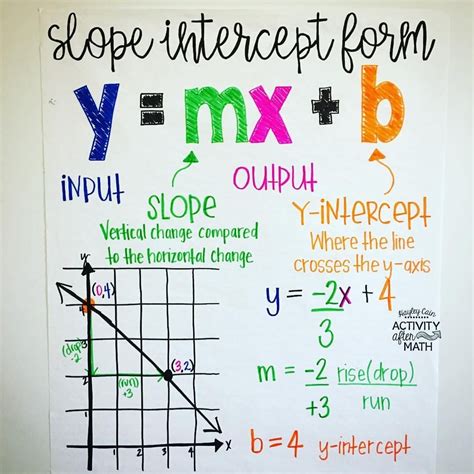 slope intercept form
y = mx + b
INPUT
OUTPUT
SLOPE
Vertical change compared
to the horizontal change
Y-INTERCEPT
Where the line
crosses the y-axis
y = -2x + 4
3
Hayley Cain
ACTIVITY
after
MATH
m = -2 rise(drop)
+3 run
b = 4 y-intercept
y
(0,4)
4
3
(drop)
-2
2
(run)
+3
(3,2)
1
1 2 3 4 x